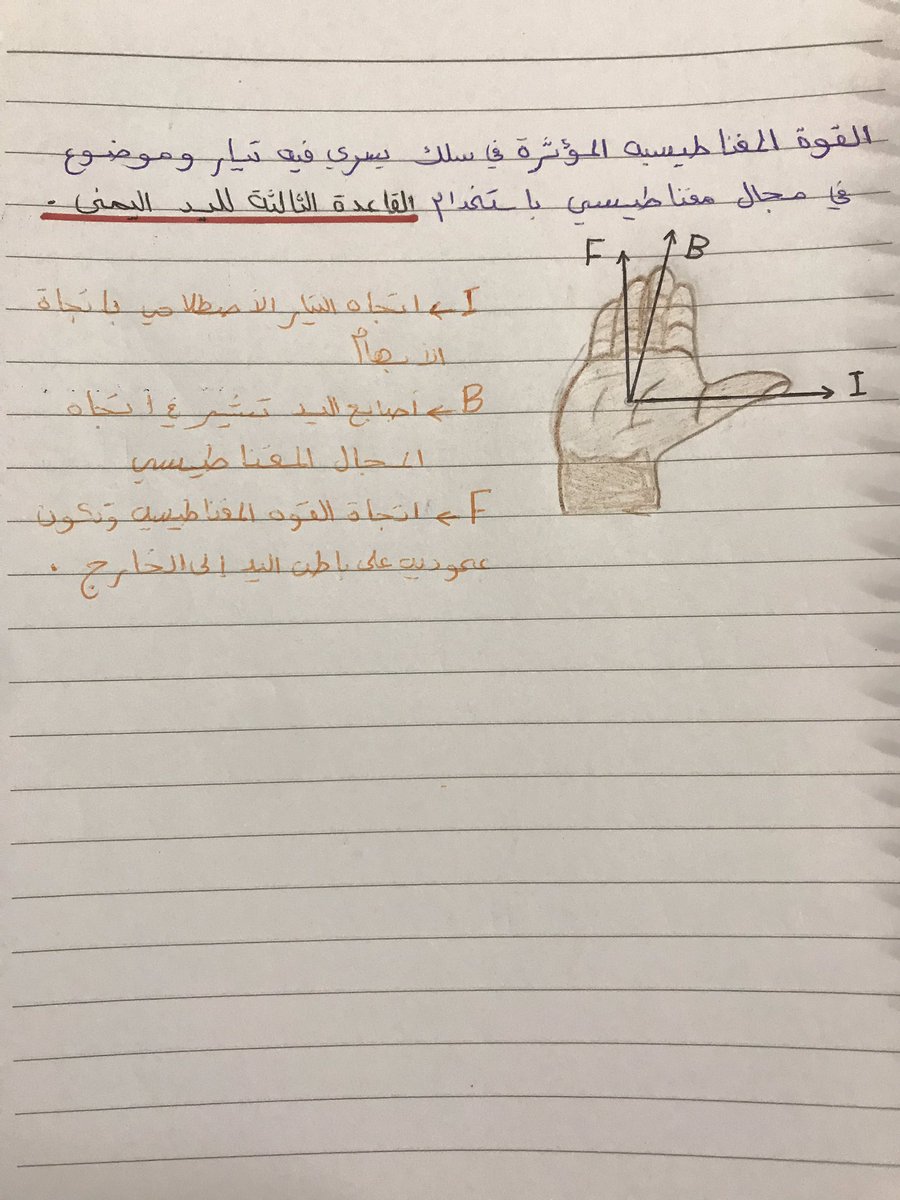 القوة المغناطيسيه المؤثرة في سلك يسري فيه تيار وموضوع
في مجال مغناطيسي باستخدام القاعدة الثالثة لليد اليمنى .
F
B
I
I ← اتجاه التيار الأصطلاحي باتجاة
الأبهام
B ← أصابع اليد تشير في أتجاه
المجال المغناطيسي
F ← اتجاة القوه المغناطيسيه وتكون
عموديه على باطن اليد إلى الخارج .